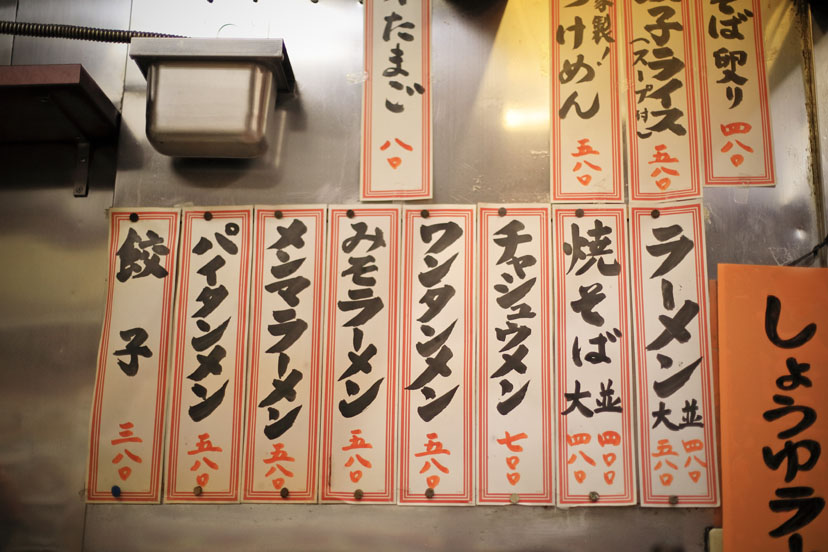 そば 卵入り 四八〇
子ライス (スープ付) 五八〇
家製!
つけめん 五八〇
たまご 八〇
しょうゆラー
ラーメン
並 四八〇
大 五八〇
焼そば
並 四〇〇
大 四八〇
チャシュウメン 七〇〇
ワンタンメン 五八〇
みモラーメン 五八〇
メンマラーメン 五八〇
パイタンメン 五八〇
餃子 三八〇